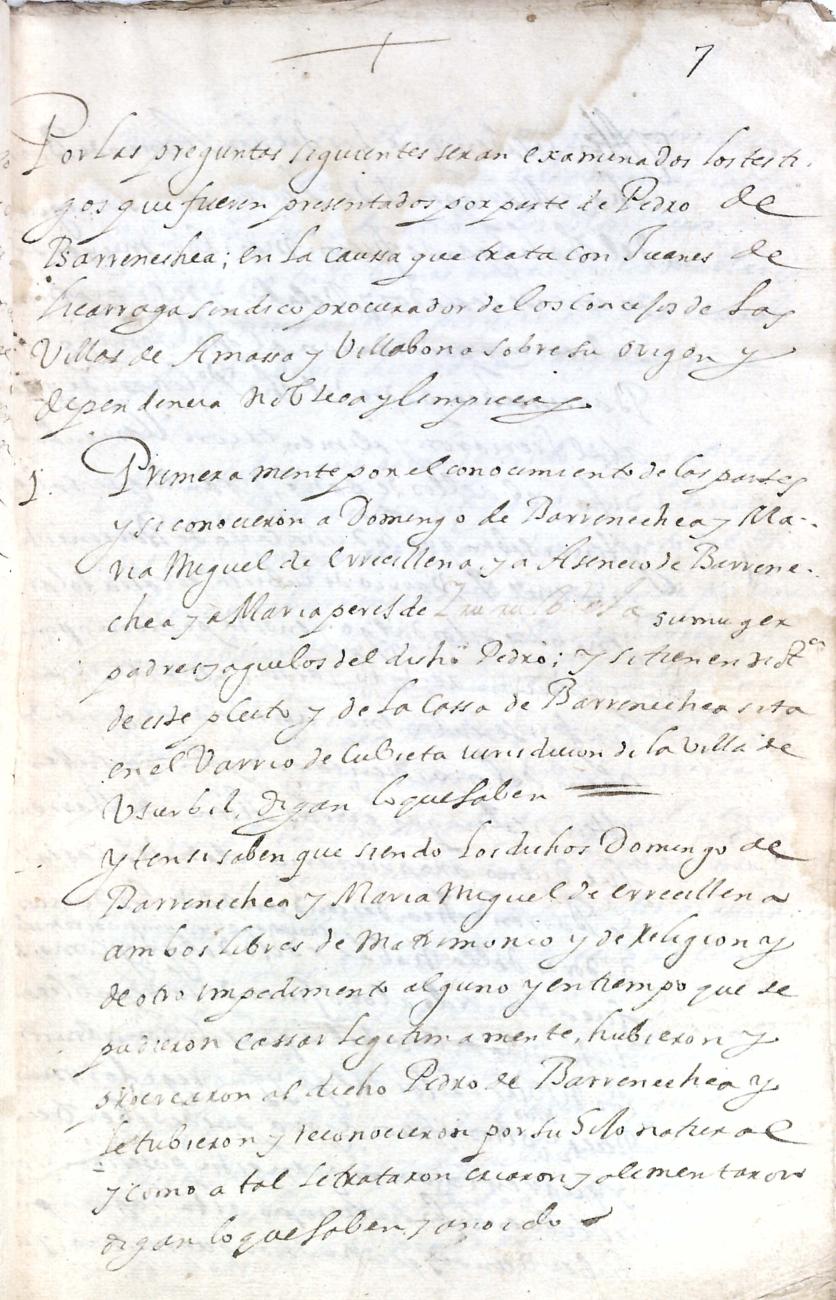 7
Por Las preguntas siguientes seran examinados los testi-
gos que fueren presentados por parte de Pedro de
Barrenechea; en La caussa que trata con Juanes de
Licarraga sindico procurador de los Concejos de Las
Villas de Amassa y Villabona sobre su origen y
dependencia nobleca y limpieca
1. Primera mente por el conocimiento de las partes
y si conocieron a Domingo de Barrenechea y Ma-
ria Miguel de Errecillena y a Asencio de Barrene-
chea y a Maria peres de su muger
padres y aguelos del dicho Pedro; y si tienen notª
de este pleito y de La Cassa de Barrenechea sita
en el Varrio de Cubieta iurisdicion de la villa de
Usurbil, digan lo que saben
yten si saben que siendo Los dichos Domingo de
Barrenechea y Maria Miguel de Errecillena
ambos libres de Matrimonio y de Religion y
de otro impedimento alguno y en tiempo que se
pudieron cassar Legitima mente, hubieron y
procrearon al dicho Pedro de Barrenechea y
le tubieron y reconocieron por su hilo natural
y como a tal le trataron criaron y alimentaron
digan lo que saben y an oido